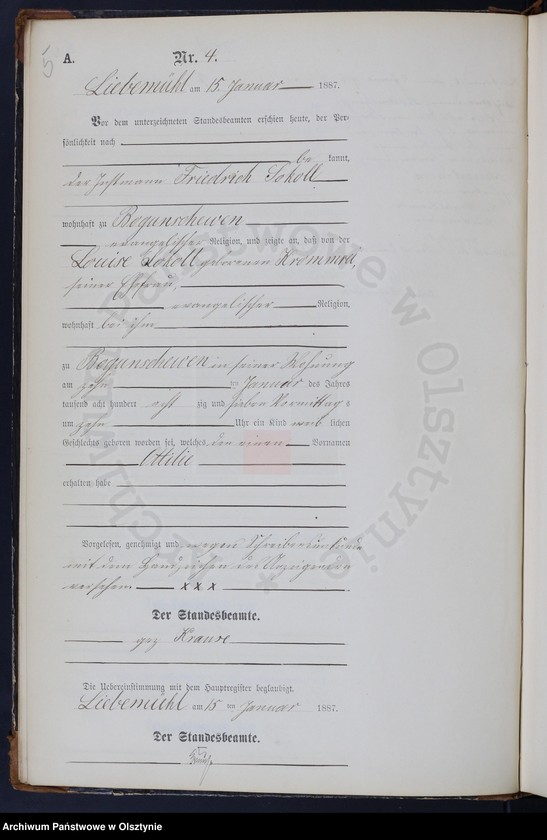 5
A. Nr. 4.
Liebemühl am 15. Januar 1887.
Vor dem unterzeichneten Standesbeamten erschien heute, der Per-
sönlichkeit nach
be kannt,
der Instmann Friedrich Sokoll
wohnhaft zu Bogunschewen
evangelischer Religion, und zeigte an, daß von der
Louise Sokoll geborenen
seiner Ehefrau,
evangelischer Religion,
wohnhaft bei ihm
zu Bogunschewen in seiner Wohnung
am zehn ten Januar des Jahres
tausend acht hundert acht zig und sieben Vormittag s
um zehn Uhr ein Kind weib lichen
Geschlechts geboren worden sei, welches den einen Vornamen
Ottilie
erhalten habe
Vorgelesen, genehmigt und wegen Schreibensunkunde
mit dem Handzeichen des Anzeigenden
versehen xxx
Der Standesbeamte.
gez Krause
Die Uebereinstimmung mit dem Hauptregister beglaubigt.
Liebemühl am 15 ten Januar 1887.
Der Standesbeamte.
Archiwum Państwowe w Olsztynie
Archiwum Państwowe w Olsztynie